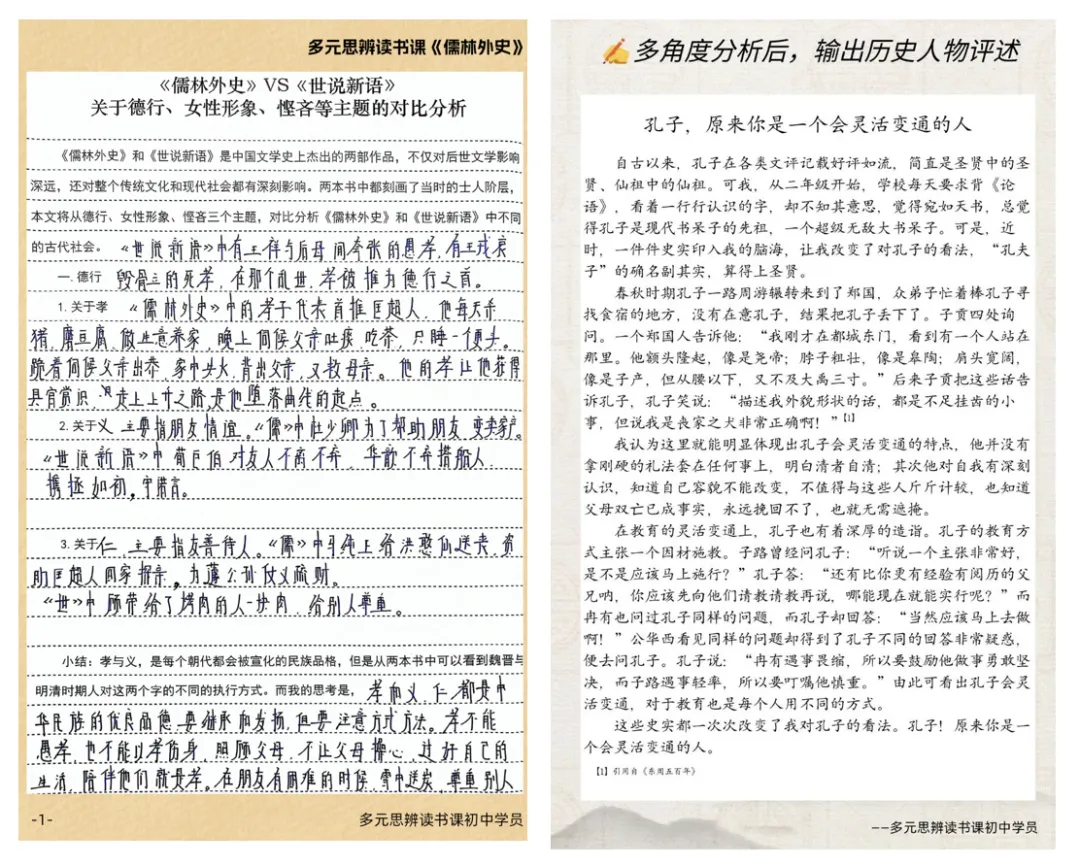 多元思辨读书课《儒林外史》
《儒林外史》VS《世说新语》
关于德行、女性形象、悭吝等主题的对比分析
《儒林外史》和《世说新语》是中国文学史上杰出的两部作品，不仅对后世文学影响
深远，还对整个传统文化和现代社会都有深刻影响。两本书中都刻画了当时的士人阶层，
本文将从德行、女性形象、悭吝三个主题，对比分析《儒林外史》和《世说新语》中不同
的古代社会。 《世说新语》中有王祥与后母间夸张的愚孝，有王戎哀
一. 德行 毁骨立的死孝，在那个乱世，孝被推为德行之首。
1. 关于孝 《儒林外史》中的孝子代表首推匡超人，他每天杀
猪、磨豆腐，做生意养家，晚上伺候父亲吐痰、吃茶，只睡一个更头。
跪着伺候父亲出恭，家中失火，背出父亲，又救母亲。他的孝让他获得
县官赏识，走上上升之路，是他堕落曲线的起点。
2. 关于义 主要指朋友情谊。《儒》中杜少卿为了帮助朋友变卖家产。
《世说新语》中荀巨伯对友人不离不弃，华歆不弃搭船人，
携拯如初，守诺言。
3. 关于仁，主要指友善待人。《儒》中马纯上给洪憨仙送丧，资
助匡超人回家探亲，为蘧公孙仗义疏财。
《世》中顾荣给了烤肉的人一块肉，给别人尊重。
小结：孝与义，是每个朝代都会被宣化的民族品格，但是从两本书中可以看到魏晋与
明清时期人对这两个字的不同的执行方式。而我的思考是， 孝和义、仁都是中
华民族的优良品德，要继承和发扬，但要注意方式方法。孝不能
愚孝，也不能以孝伤身，照顾父母，不让父母操心，过好自己的
生活，陪伴他们就是孝。在朋友有困难的时候，雪中送炭，尊重别人
-1-
多元思辨读书课初中学员
多角度分析后，输出历史人物评述
孔子，原来你是一个会灵活变通的人
自古以来，孔子在各类文评记载好评如流，简直是圣贤中的圣
贤、仙祖中的仙祖。可我，从二年级开始，学校每天要求背《论
语》，看着一行行认识的字，却不知其意思，觉得宛如天书，总觉
得孔子是现代书呆子的先祖，一个超级无敌大书呆子。可是，近
时，一件件史实印入我的脑海，让我改变了对孔子的看法，“孔夫
子”的确名副其实，算得上圣贤。
春秋时期孔子一路周游辗转来到了郑国，众弟子忙着棒孔子寻
找食宿的地方，没有在意孔子，结果把孔子丢下了。子贡四处询
问。一个郑国人告诉他：“我刚才在都城东门，看到有一个人站在
那里。他额头隆起，像是尧帝；脖子粗壮，像是皋陶；肩头宽阔，
像是子产，但从腰以下，又不及大禹三寸。”后来子贡把这些话告
诉孔子，孔子笑说：“描述我外貌形状的话，都是不足挂齿的小
事，但说我是丧家之犬非常正确啊！”[1]
我认为这里就能明显体现出孔子会灵活变通的特点，他并没有
拿刚硬的礼法套在任何事上，明白清者自清；其次他对自我有深刻
认识，知道自己容貌不能改变，不值得与这些人斤斤计较，也知道
父母双亡已成事实，永远挽回不了，也就无需遮掩。
在教育的灵活变通上，孔子也有着深厚的造诣。孔子的教育方
式主张一个因材施教。子路曾经问孔子：“听说一个主张非常好，
是不是应该马上施行？”孔子答：“还有比你更有经验有阅历的父
兄呐，你应该先向他们请教请教再说，哪能现在就能实行呢？”而
冉有也问过孔子同样的问题，而孔子却回答：“当然应该马上去做
啊！”公华西看见同样的问题却得到了孔子不同的回答非常疑惑，
便去问孔子。孔子说：“冉有遇事畏缩，所以要鼓励他做事勇敢坚
决，而子路遇事轻率，所以要叮嘱他慎重。”由此可看出孔子会灵
活变通，对于教育也是每个人用不同的方式。
这些史实都一次次改变了我对孔子的看法。孔子！原来你是一
个会灵活变通的人。
[1] 引用自《东周五百年》
——多元思辨读书课初中学员